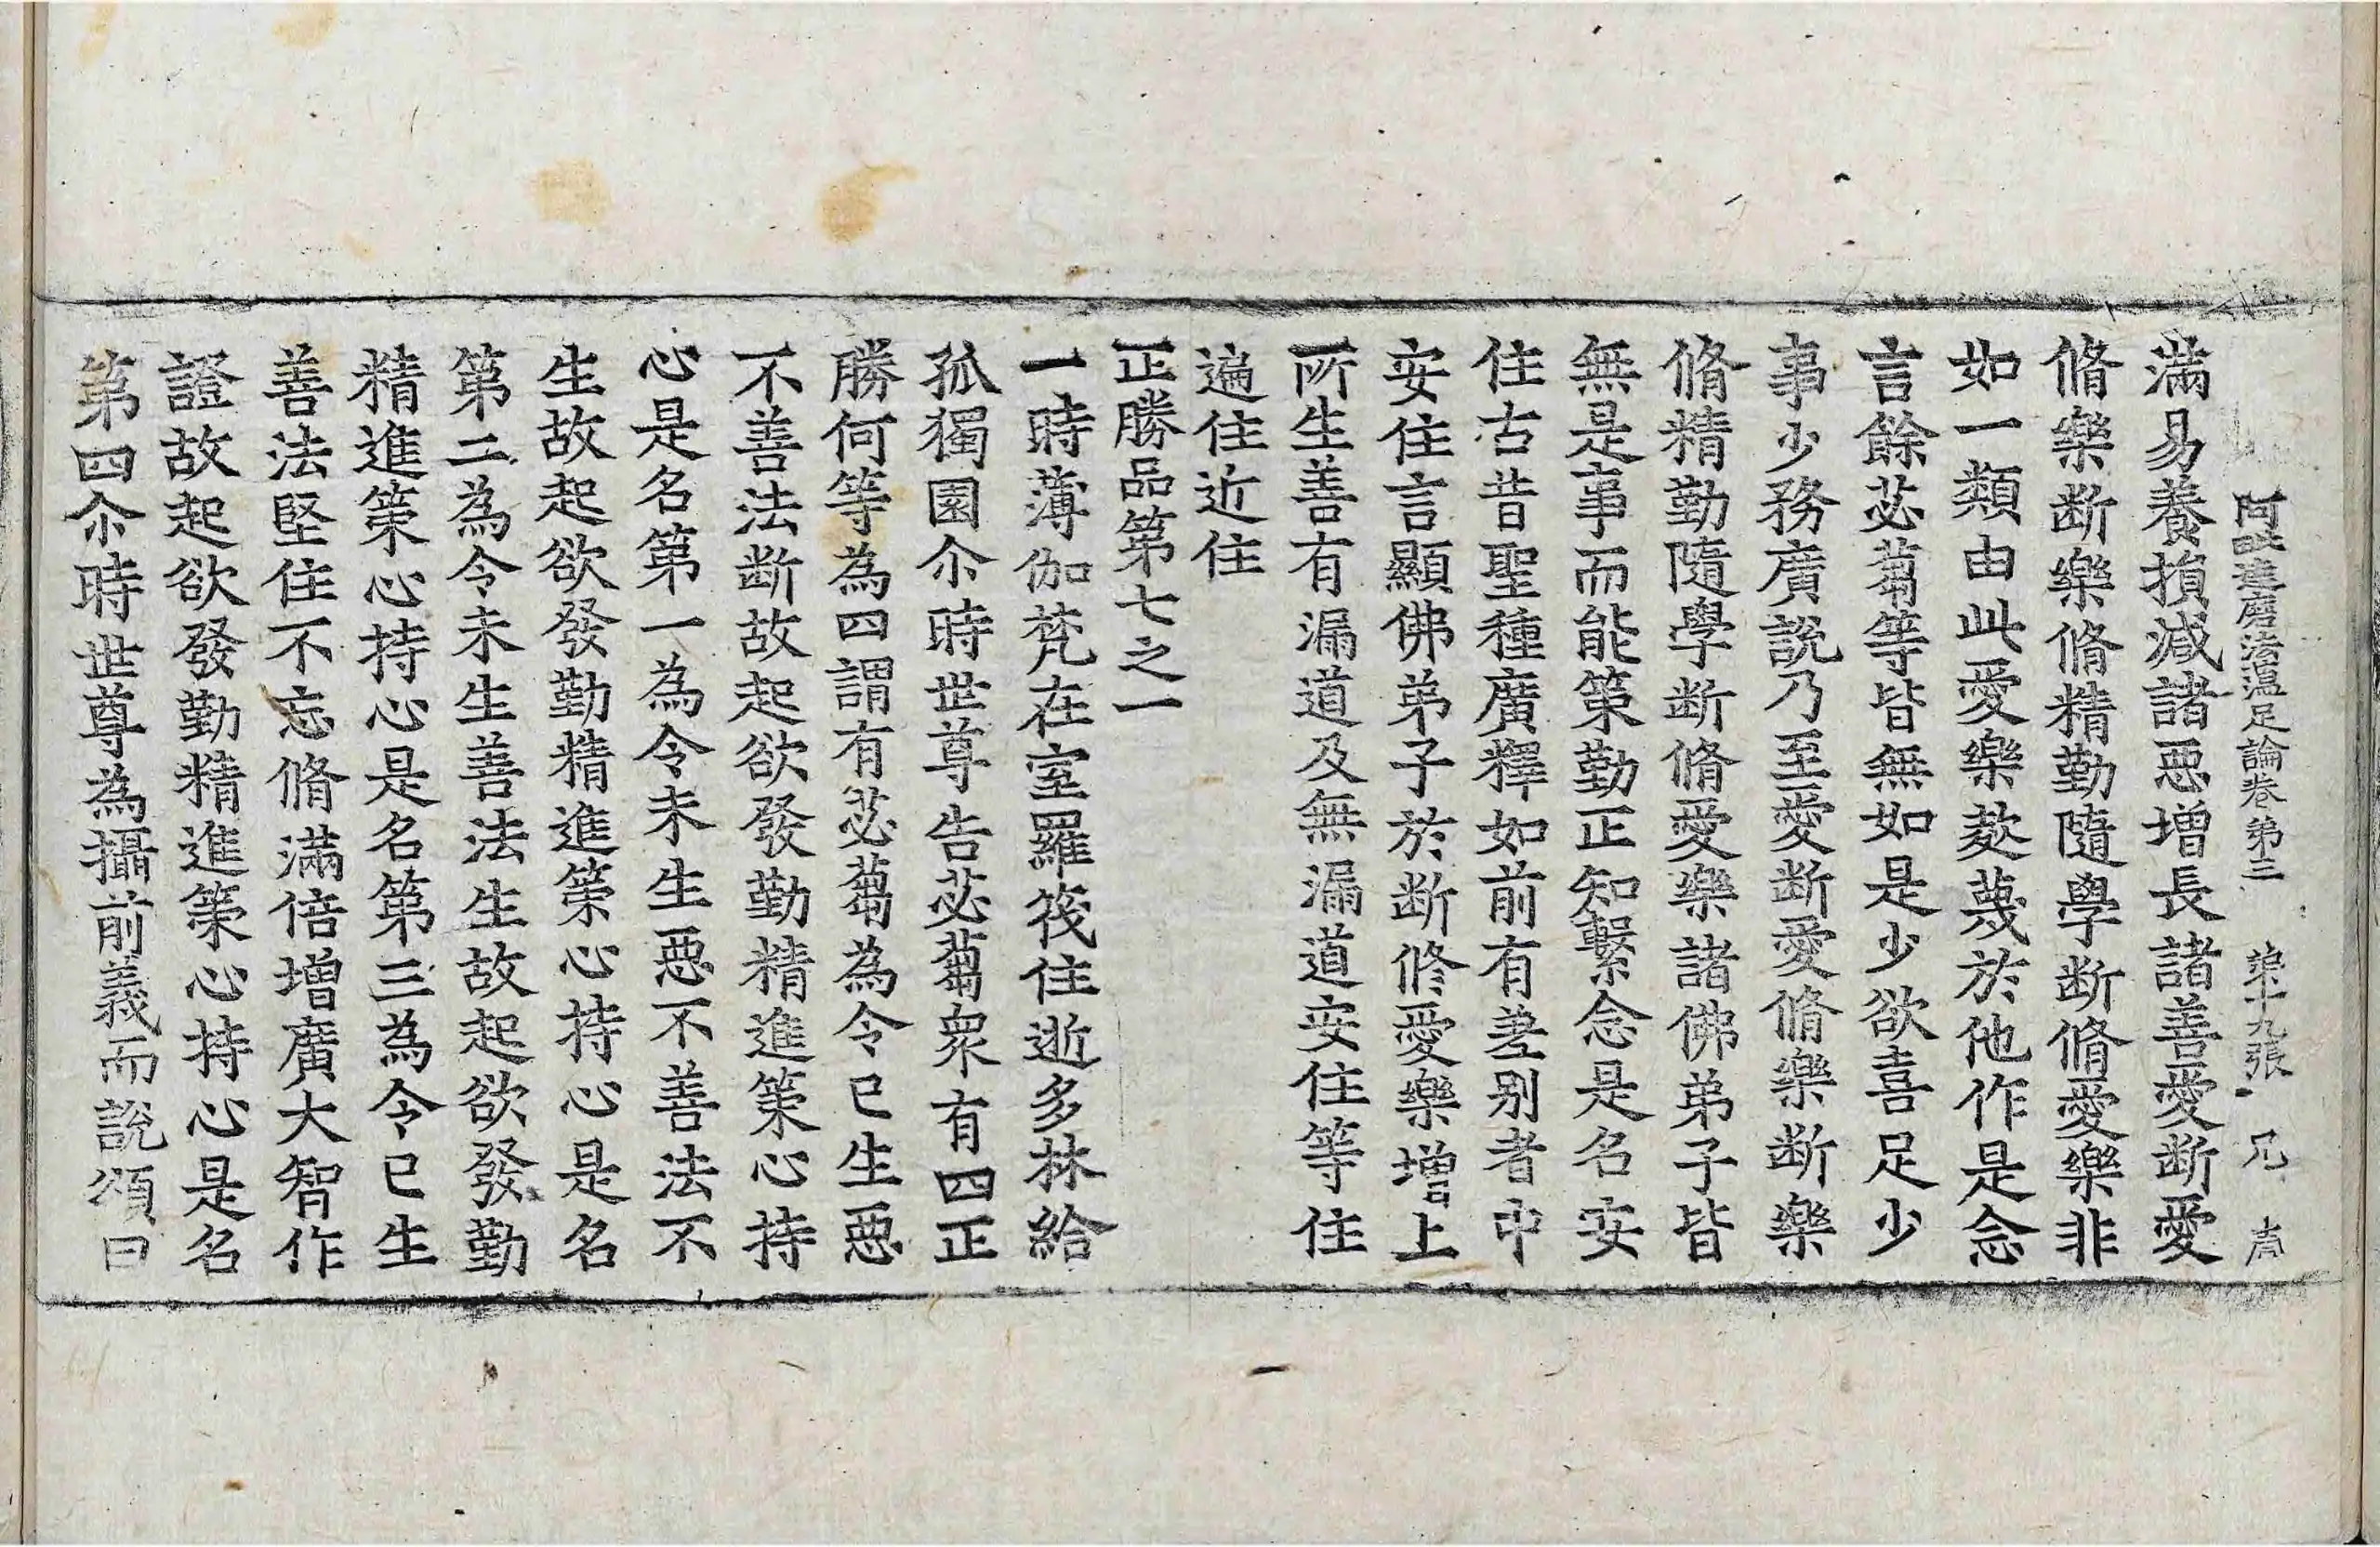 阿毗達磨法蘊足論卷第三 第十九張 兄
滿易養損減諸惡增長諸善愛断愛
脩樂断樂脩精勤隨學断脩愛樂非
如一類由此愛樂䔑蔑於他作是念
言餘苾蒭等皆無如是少欲喜足少
事少務廣說乃至愛断愛脩樂断樂
脩精勤隨學断脩愛樂諸佛弟子皆
無是事而能策勤正知繫念是名安
住古昔聖種廣釋如前有差别者中
安住言顯佛弟子於断修愛樂增上
所生善有漏道及無漏道安住等住
遍住近住
正勝品第七之一
一時薄伽梵在室羅筏住逝多林給
孤獨園尒時世尊告苾蒭衆有四正
勝何等為四謂有苾蒭為令已生惡
不善法断故起欲發勤精進策心持
心是名第一為令未生惡不善法不
生故起欲發勤精進策心持心是名
第二為令未生善法生故起欲發勤
精進策心持心是名第三為令已生
善法堅住不忘脩滿倍增廣大智作
證故起欲發勤精進策心持心是名
第四尒時世尊為攝前義而說頌曰